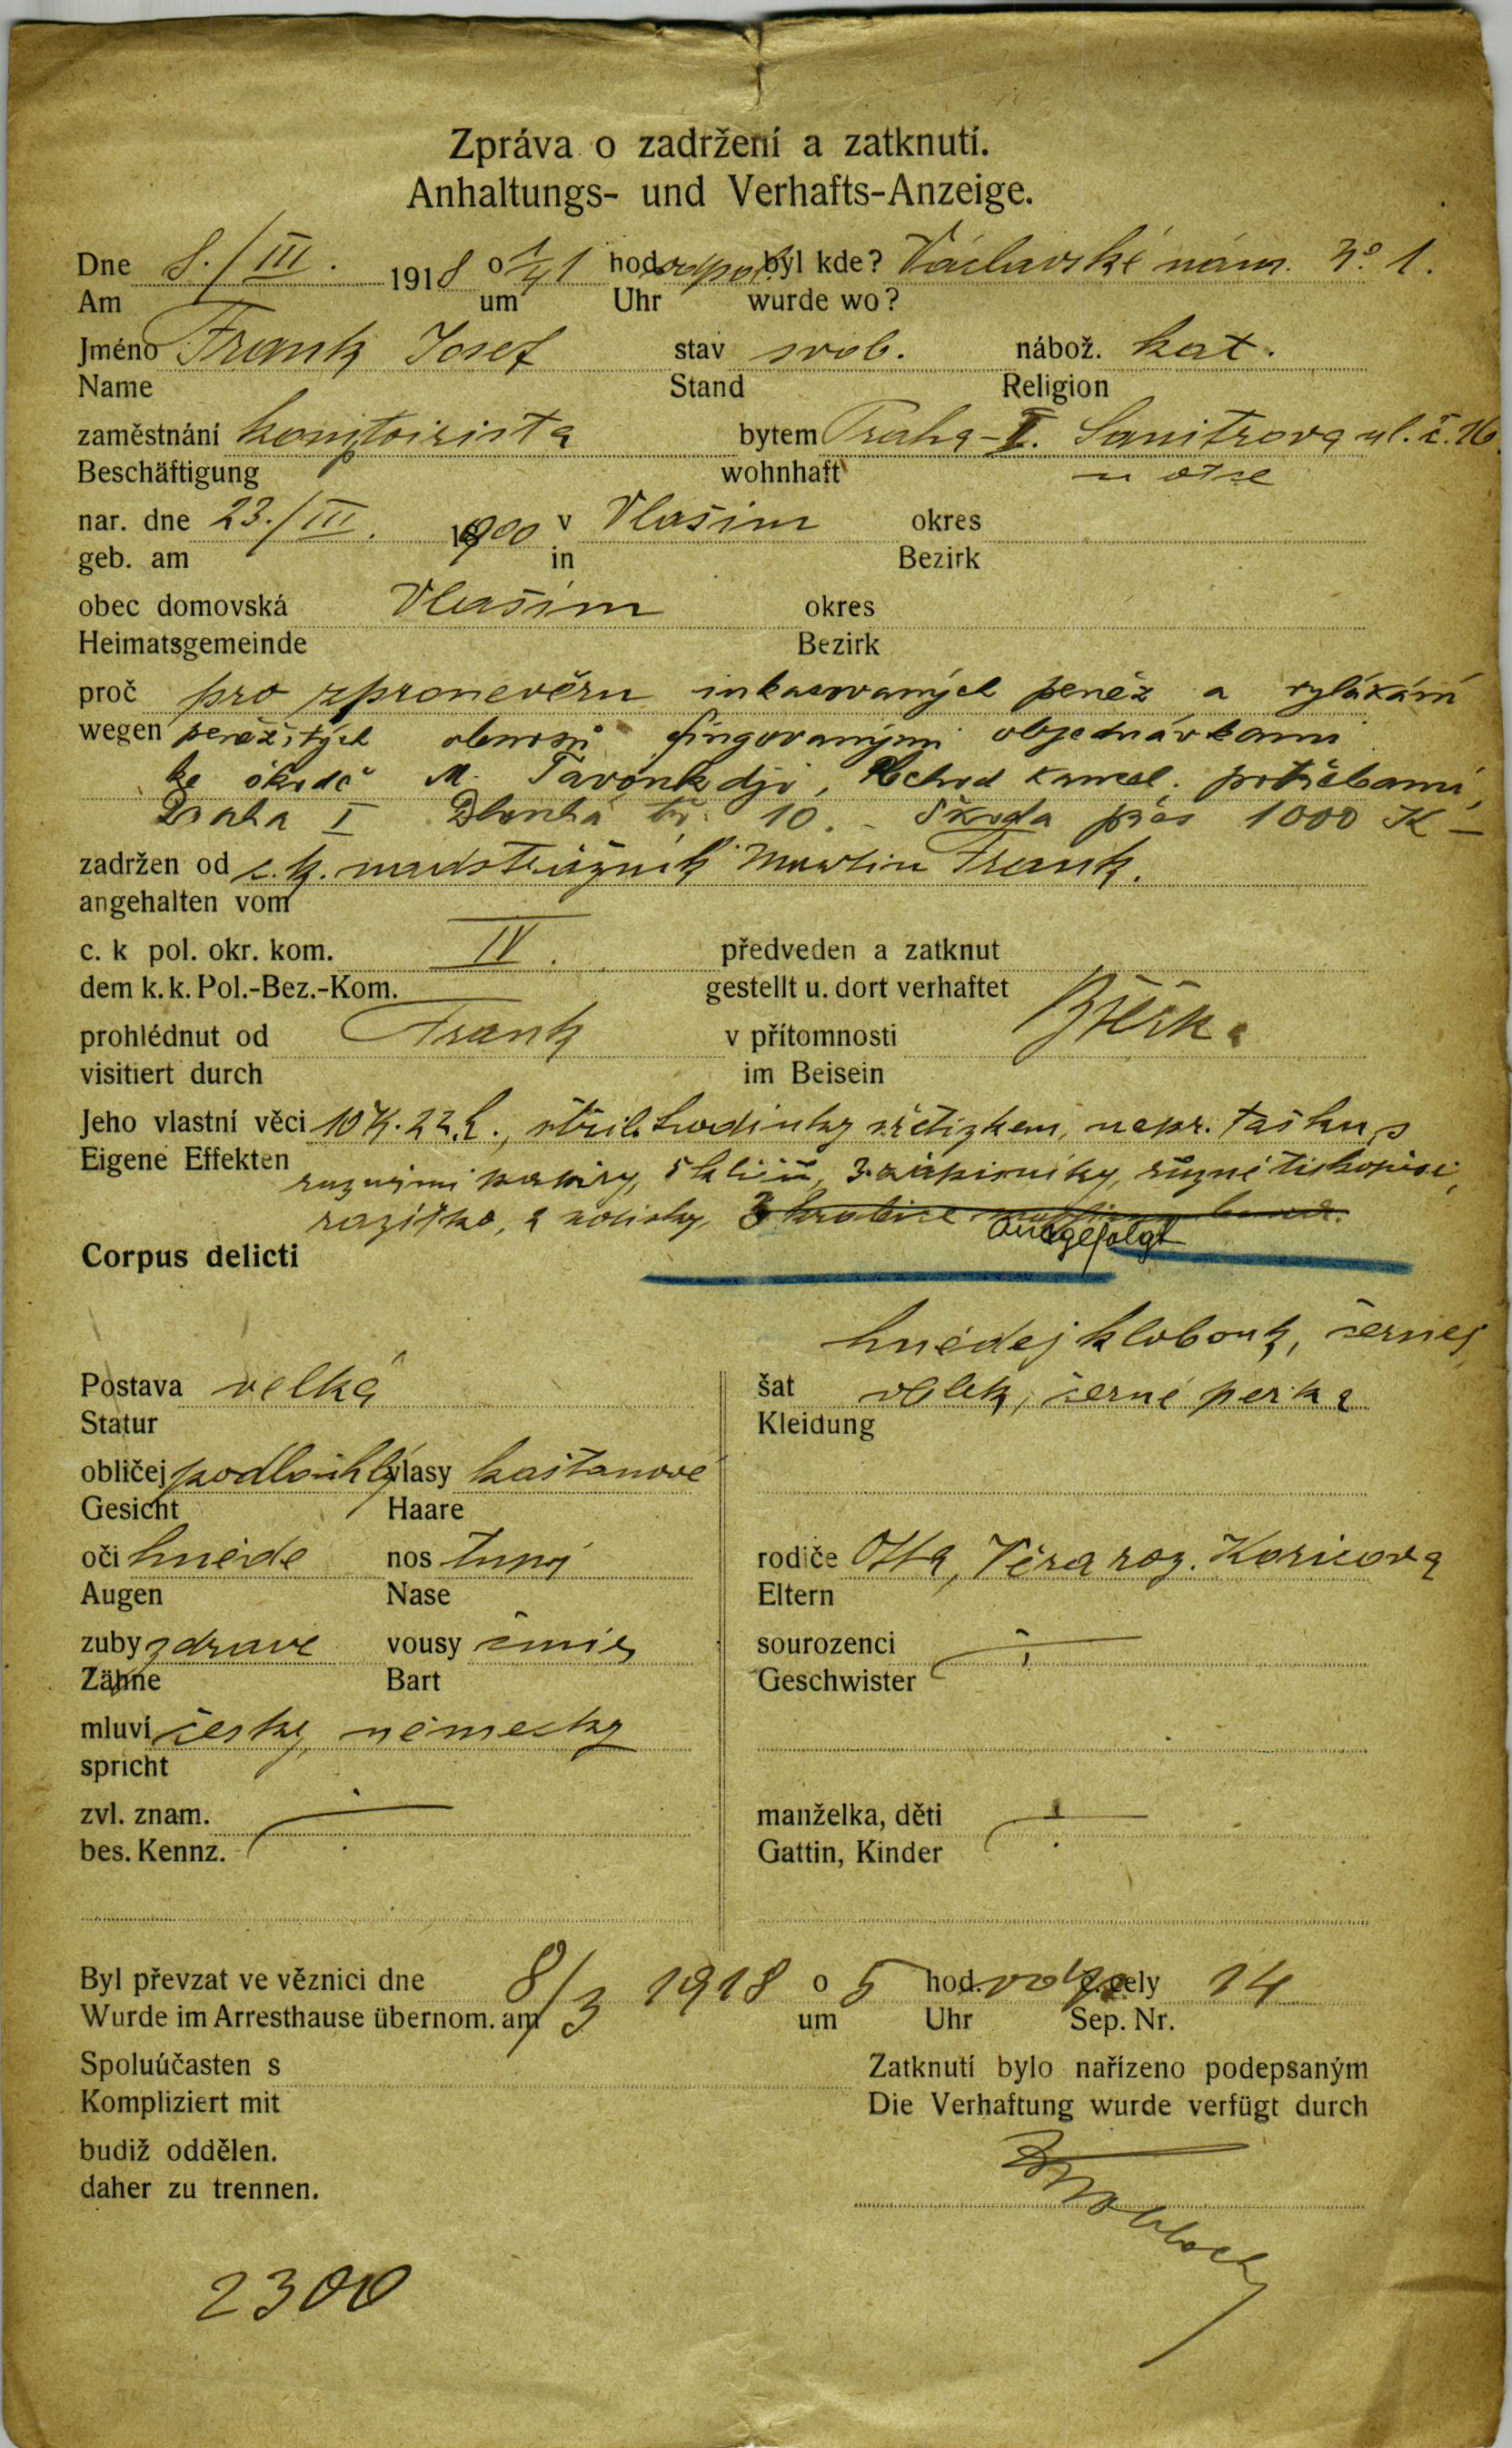 Zpráva o zadržení a zatknutí.
Anhaltungs- und Verhafts-Anzeige.
Dne 8./III. 1918 o 1/41 hod. odpol. byl kde? Václavské nám. No 1.
Am um Uhr wurde wo?
Jméno Frank Josef stav svob. nábož. kat.
Name Stand Religion
zaměstnání komptoirista bytem Praha-II. Sanitrova ul. č. 16
Beschäftigung wohnhaft u otce
nar. dne 23./III. 1900 v Vlašim okres
geb. am in Bezirk
obec domovská Vlašim okres
Heimatsgemeinde Bezirk
proč pro zpronevěru inkasovaných peněz a vylákání
wegen peněžitých obnosů fingovanými objednávkami
ke škodě M. obchod kancel. potřebami,
Praha I Dlouhá tř. 10. - Škoda přes 1000 K -
zadržen od c.k. nadstrážník Martin Frank.
angehalten vom
c. k pol. okr. kom. IV. předveden a zatknut
dem k. k. Pol.-Bez.-Kom. gestellt u. dort verhaftet
prohlédnut od Frank v přítomnosti
visitiert durch im Beisein
Jeho vlastní věci 10 K. 22 h., stříb. hodinky s řetízkem, nepr. tašku s
Eigene Effekten
různými papíry, 5 klíčů, 3 zápisníky, různé tiskopisy,
razítko, 2 notisky, 3 krabice
ausgefolgt
Corpus delicti
hnědej klobouk, černej
Postava velká šat oblek, černé perka
Statur Kleidung
obličej podlouhlý vlasy kaštanové
Gesicht Haare
oči hnědé nos tupý rodiče Otta, Věra roz. Koricova
Augen Nase Eltern
zuby zdravé vousy sourozenci ÷
Zähne Bart Geschwister
mluví česky, německy
spricht
zvl. znam. ÷ manželka, děti ÷
bes. Kennz. Gattin, Kinder
Byl převzat ve věznici dne 8/3 1918 o 5 hod. odp. č. cely 14
Wurde im Arresthause übernom. am um Uhr Sep. Nr.
Spoluúčasten s Zatknutí bylo nařízeno podepsaným
Kompliziert mit Die Verhaftung wurde verfügt durch
budiž oddělen.
daher zu trennen.
2300